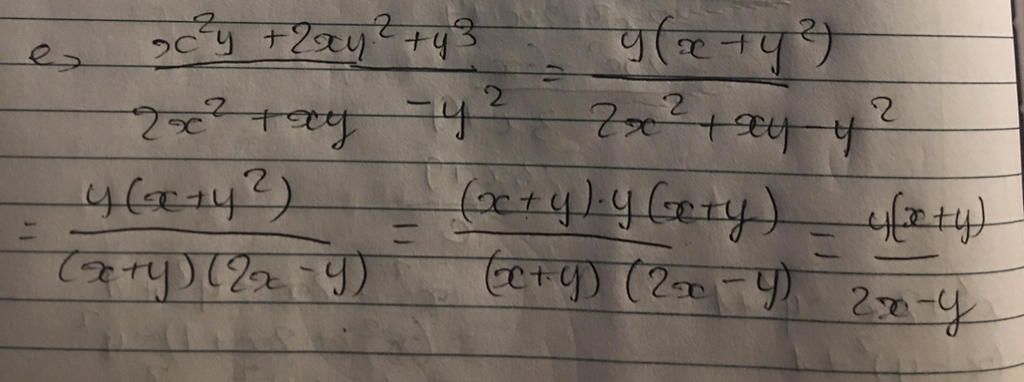 e> x²y + 2xy² + y³ / 2x² + xy - y² = y(x + y²) / 2x² + xy - y²
= y(x + y²) / (x+y)(2x - y) = (x+y)·y(x+y) / (x+y)(2x - y) = y(x+y) / 2x - y